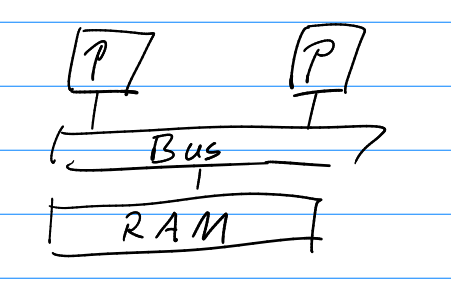 P P
Bus
RAM